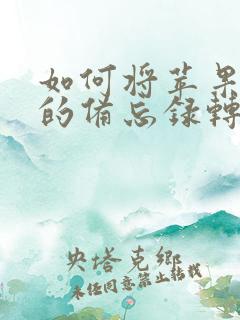 如何将苹果
的备忘录转
央塔克乡
未经同意禁止转载